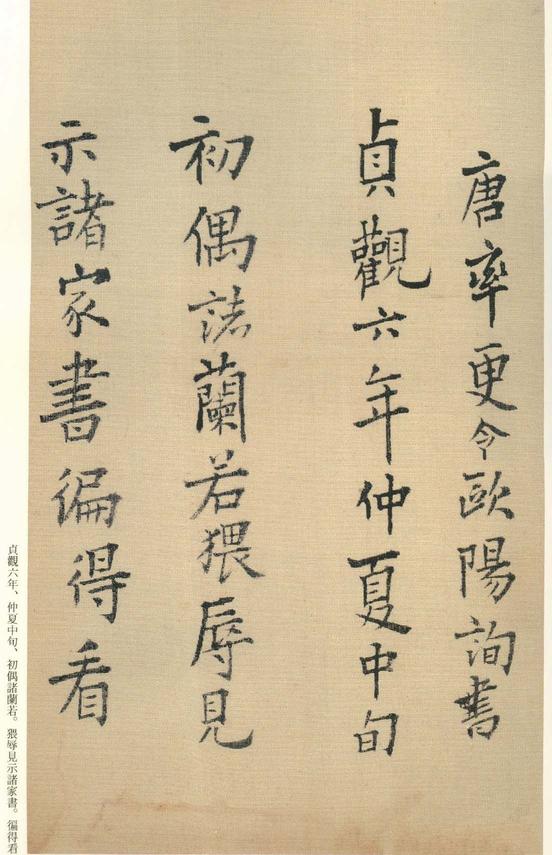 唐率更令歐陽詢書
貞觀六年仲夏中旬
初偶誌蘭若猥辱見
示諸家書徧得看
貞觀六年、仲夏中旬、初偶諸蘭若。猥辱見示諸家書。徧得看